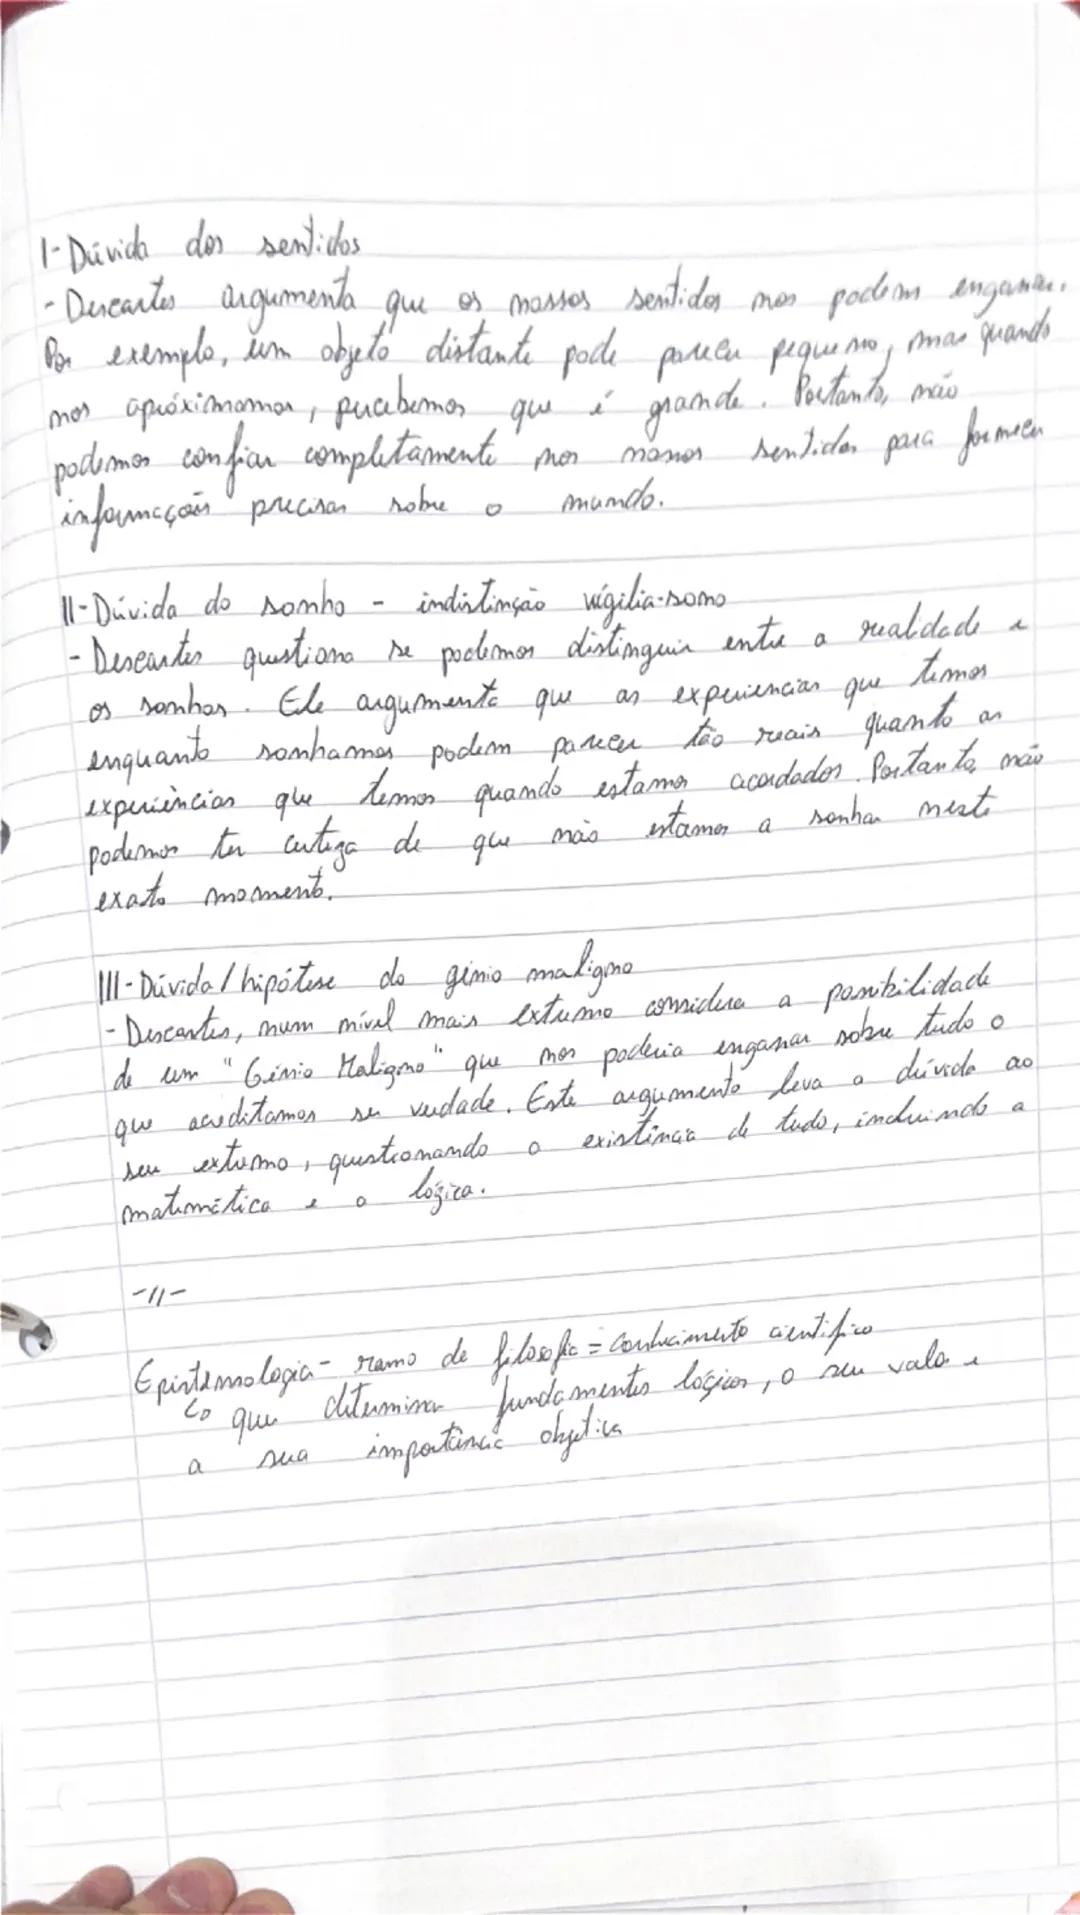 I- Dúvida dos sentidos
- Descartes argumenta que os nossos sentidos nos podem enganar.
Por exemplo, um objeto distante pode parecer pequeno, mas quando
nos apróximamos, percebemos que é grande. Portanto, não
podemos confiar completamente nos nossos sentidos para fornecer
informações precisas sobre o mundo.
II- Dúvida do sonho - indistinção vigília-sono
- Descartes questiona se podemos distinguir entre a realidade e
os sonhos. Ele argumenta que as experiencias que temos
enquanto sonhamos podem parecer tão reais quanto as
experiências que temos quando estamos acordados. Portanto, não
podemos ter certeza de que não estamos a sonhar neste
exato momento.
III- Dúvida / hipótese do génio maligno
- Descartes, num nível mais extremo considera a possibilidade
de um "Génio Maligno" que nos poderia enganar sobre tudo o
que acreditamos ser verdade. Este argumento leva a dúvida ao
seu extremo, questionando a existência de tudo, incluindo a
matemática e a lógica.
-//-
Epistemologia - ramo de filosofia = conhecimento científico
↳ que determina fundamentos lógicos, o seu valor e
a sua importância objetiva